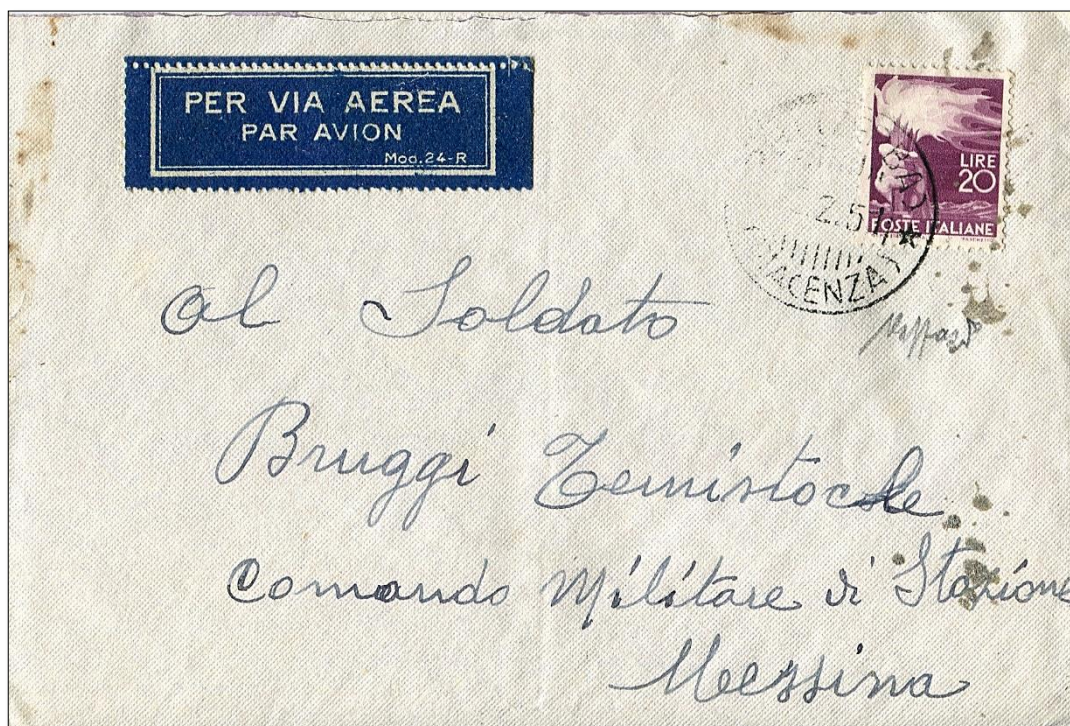 PER VIA AEREA
PAR AVION
Mod.24-R
LIRE
20
POSTE ITALIANE
2.51
(PIACENZA)
Al Soldato
Bruggi Temistocle
Comando Militare di Stazione
Messina